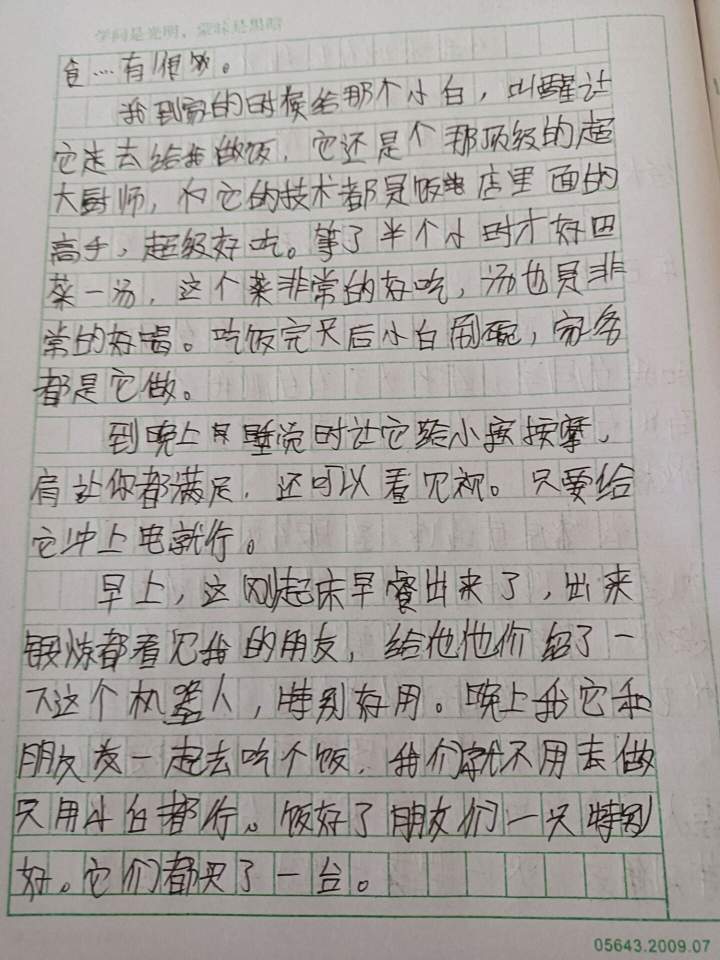 学问是光明，蒙昧是黑暗
食…有便饭。
我到家的时候给那个小白，叫醒让
它走去给我做饭，它还是个那顶级的超
大厨师，它的技术都是饭店里面的
高手，超级好吃。等了半个小时才好四
菜一汤，这个菜非常的好吃，汤也是非
常的好喝。吃饭完天后小白刷碗，家务
都是它做。
到晚上睡觉时让它给小按按摩，
肩让你都满足，还可以看见视。只要给
它冲上电就行。
早上，这刚起床早餐出来了，出来
锻炼都看见我的朋友，给他他价绍了一
下这个机器人，特别好用。晚上我它和
朋友友一起去吃个饭，我们就不用去做
只用小白都行。饭好了朋友们一尺特别
好。它们都买了一台。
05643.2009.07